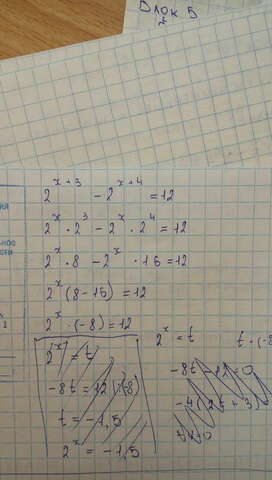 Блок 5
2^{x+3} - 2^{x+4} = 12
2^x · 2^3 - 2^x · 2^4 = 12
2^x · 8 - 2^x · 16 = 12
2^x (8 - 16) = 12
2^x · (-8) = 12
2^x = t
-8t = 12 |:(-8)
t = -1,5
2^x = -1,5
2^x = t
t · (-8
-8t - 12 = 0
-4(2t + 3)